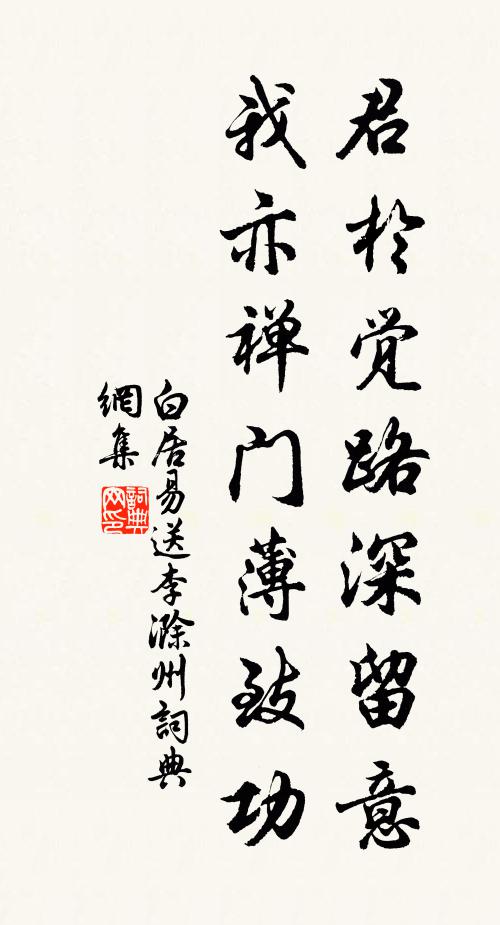 君於觉路深留意
我亦禅门薄致功
白居易送李滁州詞典
網集
詞典
网印